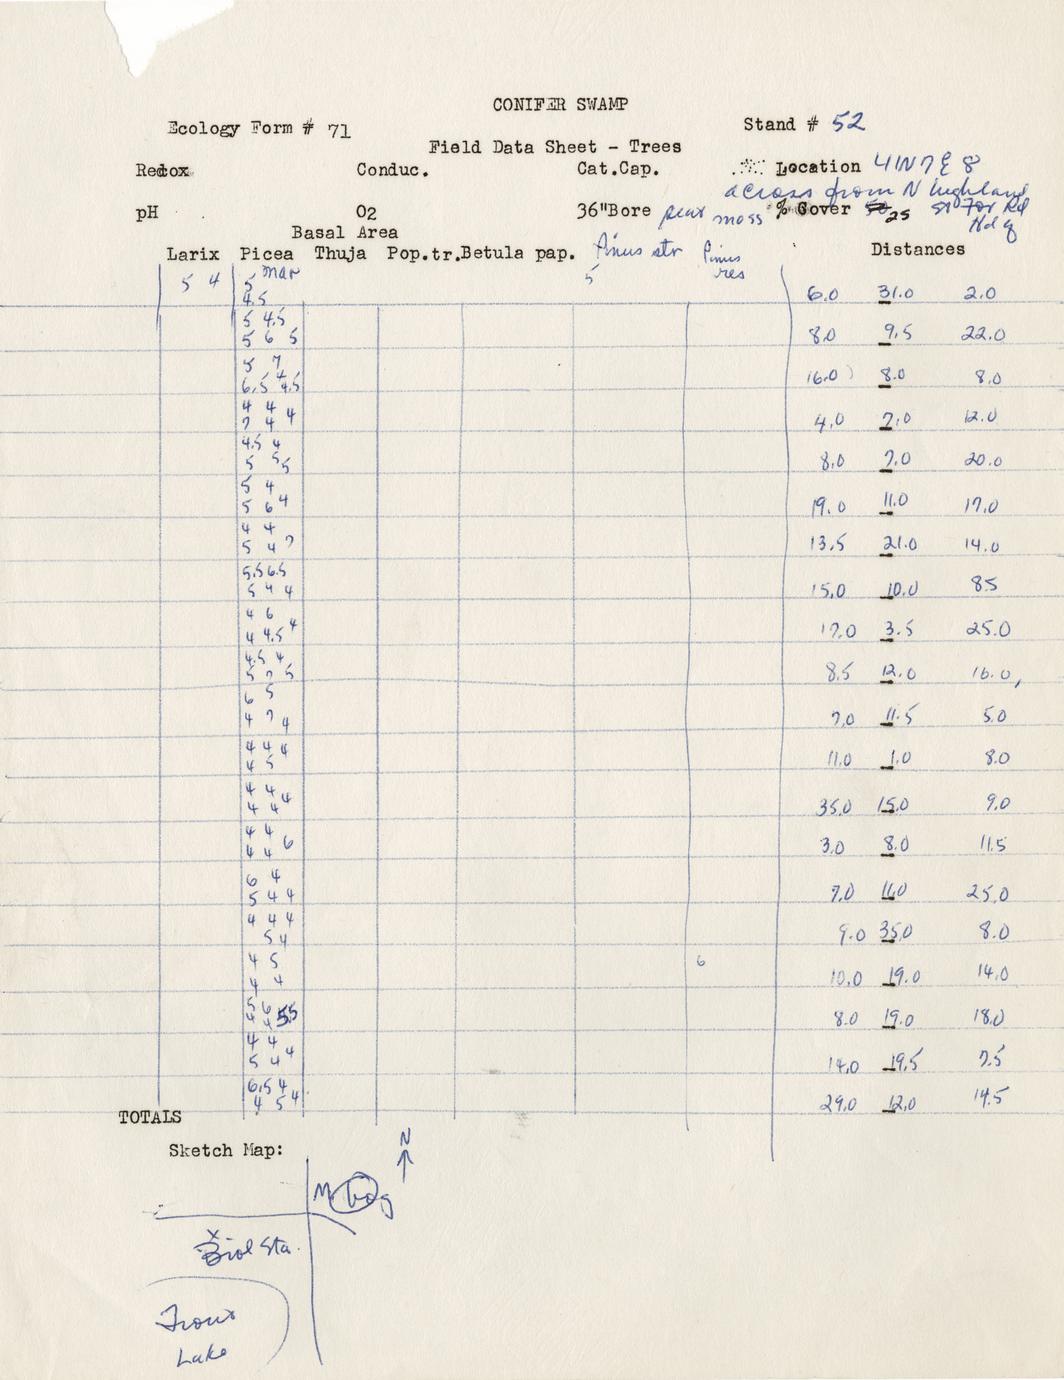 CONIFER SWAMP
Ecology Form # 71 Stand # 52
Field Data Sheet - Trees
Redox Conduc. Cat.Cap. Location 41N7E8
across from N Highland
pH O2 36"Bore peat moss % Cover 50 25 St For Rd Hdq
Basal Area
Larix Picea mar Thuja Pop.tr. Betula pap. Pinus str Pinus res Distances
5 4 5 5 6.0 31.0 2.0
4.5
5 4.5
5 6 5 8.0 9.5 22.0
5 7
6.5 4 4.5 16.0 8.0 8.0
4 4
7 4 4 4.0 7.0 12.0
4.5 4
5 5 5 8.0 7.0 20.0
5 4
5 6 4 19.0 11.0 17.0
4 4
5 4 7 13.5 21.0 14.0
5.5 6.5
5 4 4 15.0 10.0 8.5
4 6
4 4.5 4 17.0 3.5 25.0
4.5 4
5 7 5 8.5 12.0 16.0
6 5
4 7 4 7.0 11.5 5.0
4 4 4
4 5 11.0 1.0 8.0
4 4
4 4 4 35.0 15.0 9.0
4 4
4 4 6 3.0 8.0 11.5
6 4
5 4 4 7.0 25.0
4 4 4
5 4 9.0 35.0 8.0
4 5 6
4 4 10.0 19.0 14.0
5 6
4 4 5.5 8.0 19.0 18.0
4 4
5 4 4 14.0 19.5 7.5
6.5 4
4 5 4 29.0 12.0 14.5
TOTALS
Sketch Map:
N
bog
x
Biol Sta.
Trout
Lake